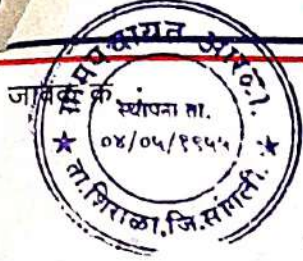 जावक क्र
ग्रामपंचायत आरळा.
स्थापना ता.
०४/०५/१९५५
★ ता.शिराळा,जि.सांगली. ★